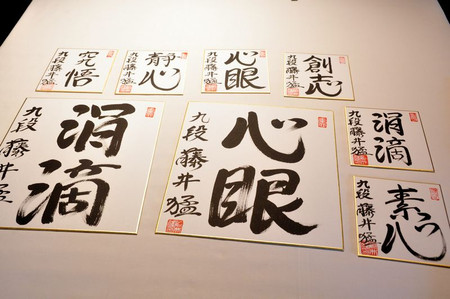 究悟
九段 藤井猛
静心
九段 藤井猛
心眼
九段 藤井猛
創志
九段 藤井猛
涓滴
九段 藤井猛
心眼
九段 藤井猛
涓滴
九段 藤井猛
素心
九段 藤井猛